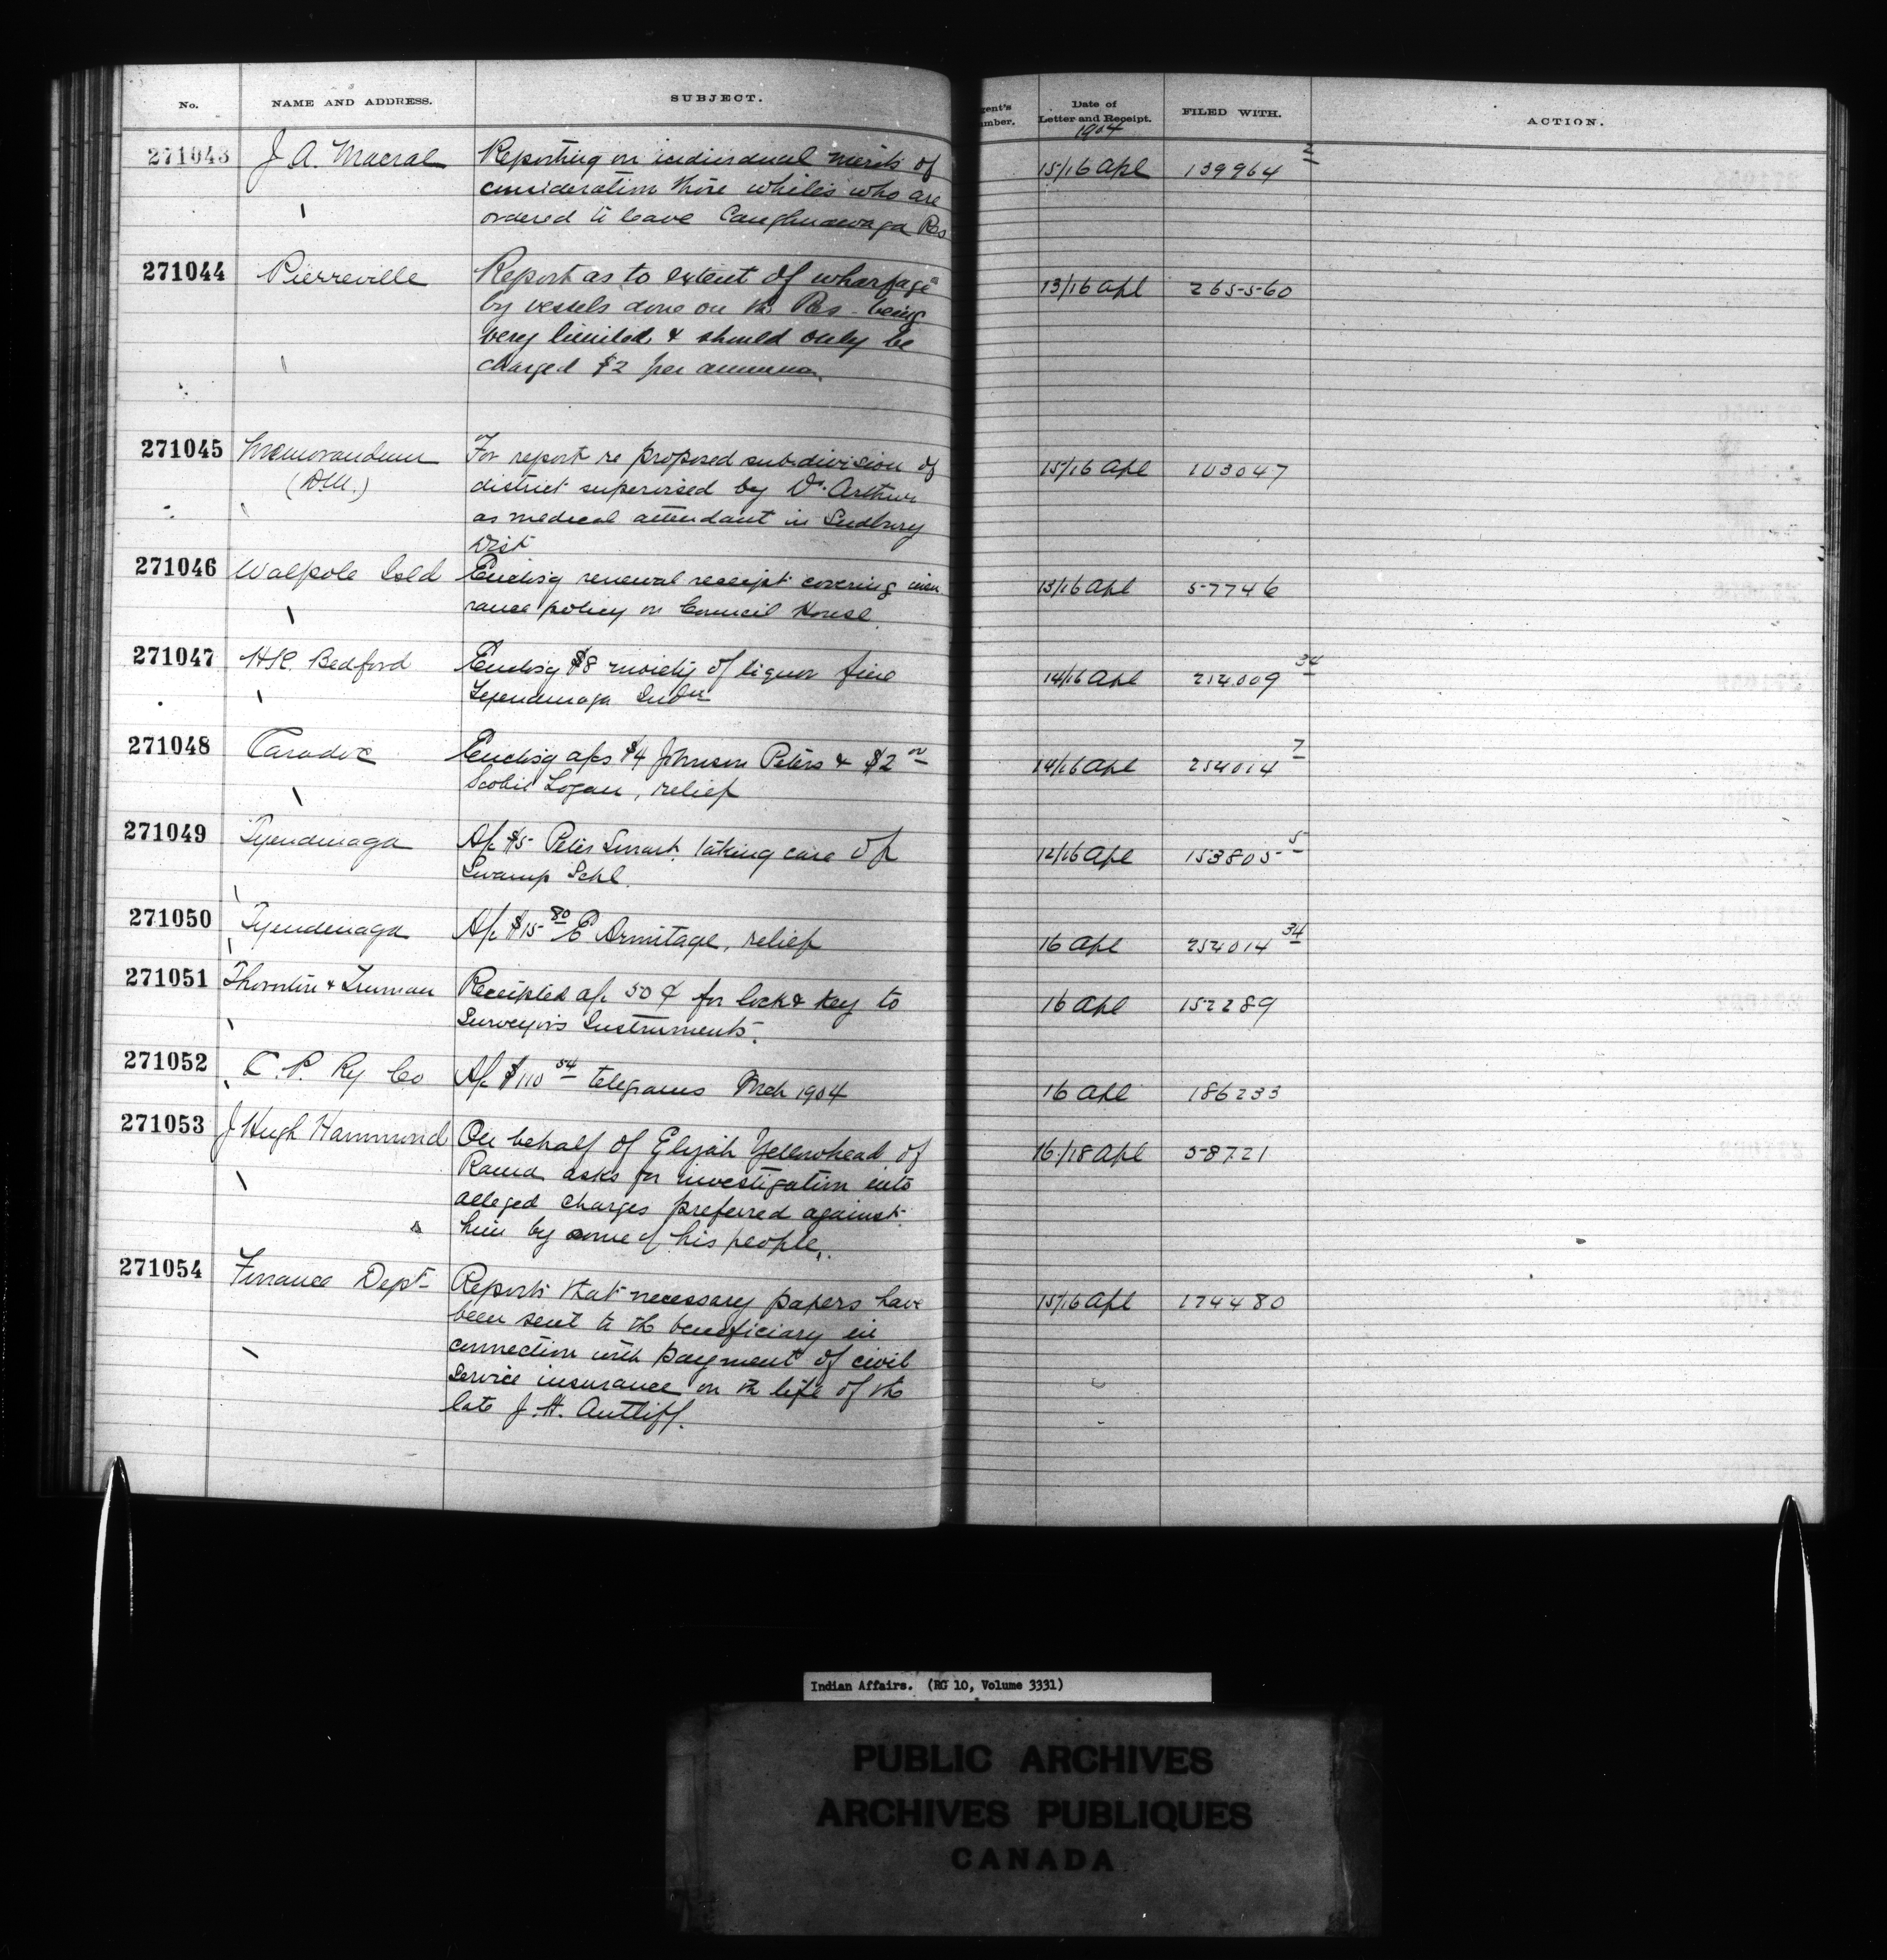 No. NAME AND ADDRESS. SUBJECT. gent's umber. Date of Letter and Receipt. FILED WITH. ACTION.
1904
271043 J A. Macrae Reporting on individual merits of 15/16 Apl 139964 2
consideration those whites who are
ordered to leave Caughnawaga Rs
271044 Pierreville Report as to extent of wharfage 13/16 Apl 265560
by vessels done on th Rs being
very limited & should only be
charged $2 per annum
271045 Memorandum For report re proposed subdivision of 15/16 Apl 103047
(D.M.) district supervised by Dr. Arthur
as medical attendant in Sudbury
Dist
271046 Walpole Isld Enclosg renewal receipt covering insu 13/16 Apl 57746
rance policy on Council House.
271047 Bedford Enclosg $8 moiety of liquor fine 14/16 Apl 214009 34
Tyendinaga Indn
271048 Caradoc Enclosg a/cs $4 Johnson Peters & $2 14/16 Apl 254014 7
Scobie Logan, relief
271049 Tyendinaga A/c $5 Peter Smart taking care of 12/16 Apl 153805 5
Swamp Schl.
271050 Tyendinaga A/c $15 80 E Armitage, relief 16 Apl 254014 34
271051 Thornton & Truman Receipted a/c 50 ¢ for lock & key to 16 Apl 152289
Surveyors Instruments.
271052 C. P. Ry Co A/c $110 54 telegrams Mch 1904 16 Apl 186233
271053 J Hugh Hammond On behalf of Elijah Yellowhead of 16/18 Apl 58721
Rama asks for investigation into
alleged charges preferred against
him by some of his people.
271054 Finance Dept Reports that necessary papers have 15/16 Apl 174480
been sent to th beneficiary in
connection with payment of civil
service insurance on th life of th
late J. H. Antliff.
Indian Affairs. (RG 10, Volume 3331)
PUBLIC ARCHIVES
ARCHIVES PUBLIQUES
CANADA